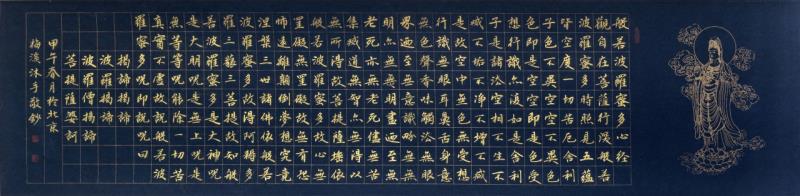 般若波羅蜜多心經
觀自在菩薩行深般若
波羅蜜多時照見五蘊
皆空度一切苦厄舍利
子色不異空空不異色
色即是空空即是色受
想行識亦復如是舍利
子是諸法空相不生不
滅不垢不淨不增不減
是故空中無色無受想
行識無眼耳鼻舌身意
無色聲香味觸法無眼
界迺至無意識界無無
明亦無無明盡迺至無
老死亦無老死盡無苦
集滅道無智亦無得以
無所得故菩提薩埵依
般若波羅蜜多故心無
罣礙無罣礙故無有恐
怖遠離顛倒夢想究竟
涅槃三世諸佛依般若
波羅蜜多故得阿耨多
羅三藐三菩提故知般
若波羅蜜多是大神呪
是大明呪是無上呪是
無等等呪能除一切苦
真實不虛故說般若波
羅蜜多呪即說呪曰
揭諦揭諦
波羅揭諦
波羅僧揭諦
菩提薩婆訶
甲午春月於北京
梅溪沐手敬鈔